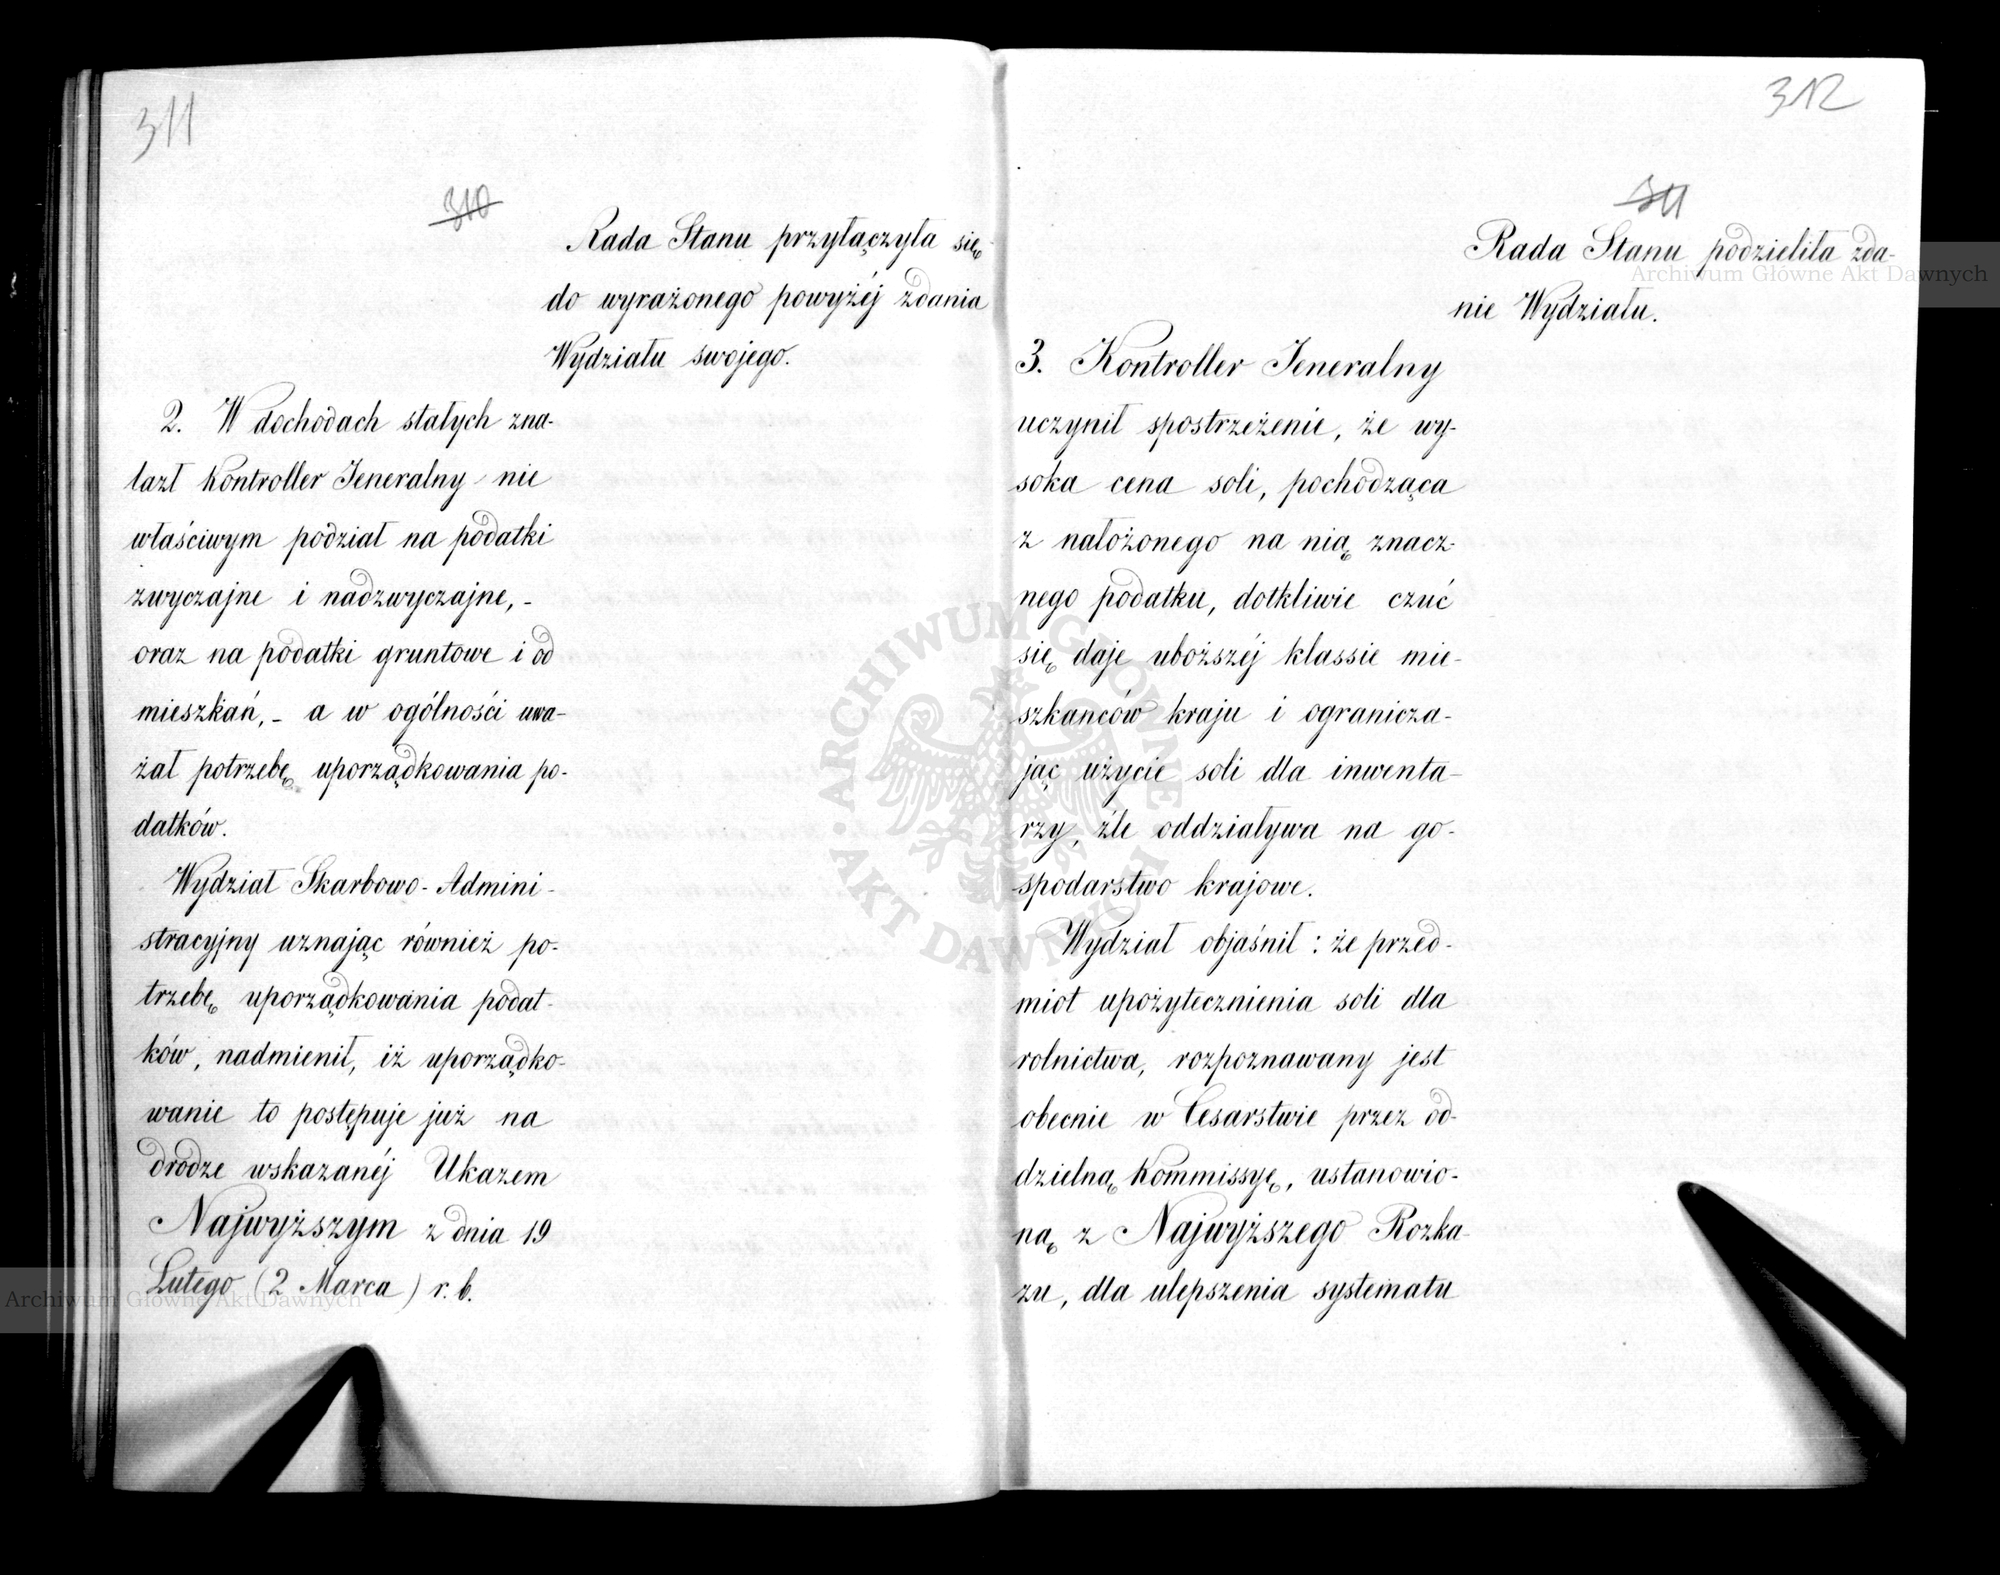 311
310
Rada Stanu przyłączyła się
do wyrażonego powyżéj zdania
Wydziału swojego.
2. W dochodach stałych zna-
lazł Kontroller Jeneralny nie
właściwym podział na podatki
zwyczajne i nadzwyczajne, -
oraz na podatki gruntowe i od
mieszkań, - a w ogólności uwa-
żał potrzebę uporządkowania po-
datków.
Wydział Skarbowo-Admini-
stracyjny uznając również po-
trzebę uporządkowania podat-
ków, nadmienił, iż uporządko-
wanie to postępuje już na
drodze wskazanéj Ukazem
Najwyższym z dnia 19
Lutego (2 Marca) r. b.
312
311
Rada Stanu podzieliła zda-
nie Wydziału.
3. Kontroller Jeneralny
uczynił spostrzeżenie, że wy-
soka cena soli, pochodząca
z nałożonego na nią znacz-
nego podatku, dotkliwie czuć
się daje uboższéj klassie mie-
szkańców kraju i ogranicza-
jąc użycie soli dla inwenta-
rzy, źle oddziaływa na go-
spodarstwo krajowe.
Wydział objaśnił: że przed-
miot upożytecznienia soli dla
rolnictwa, rozpoznawany jest
obecnie w Cesarstwie przez od-
dzielną Kommissyę, ustanowio-
ną z Najwyższego Rozka-
zu, dla ulepszenia systematu
Archiwum Główne Akt Dawnych
Archiwum Główne Akt Dawnych
ARCHIWUM GŁÓWNE • AKT DAWNYCH •